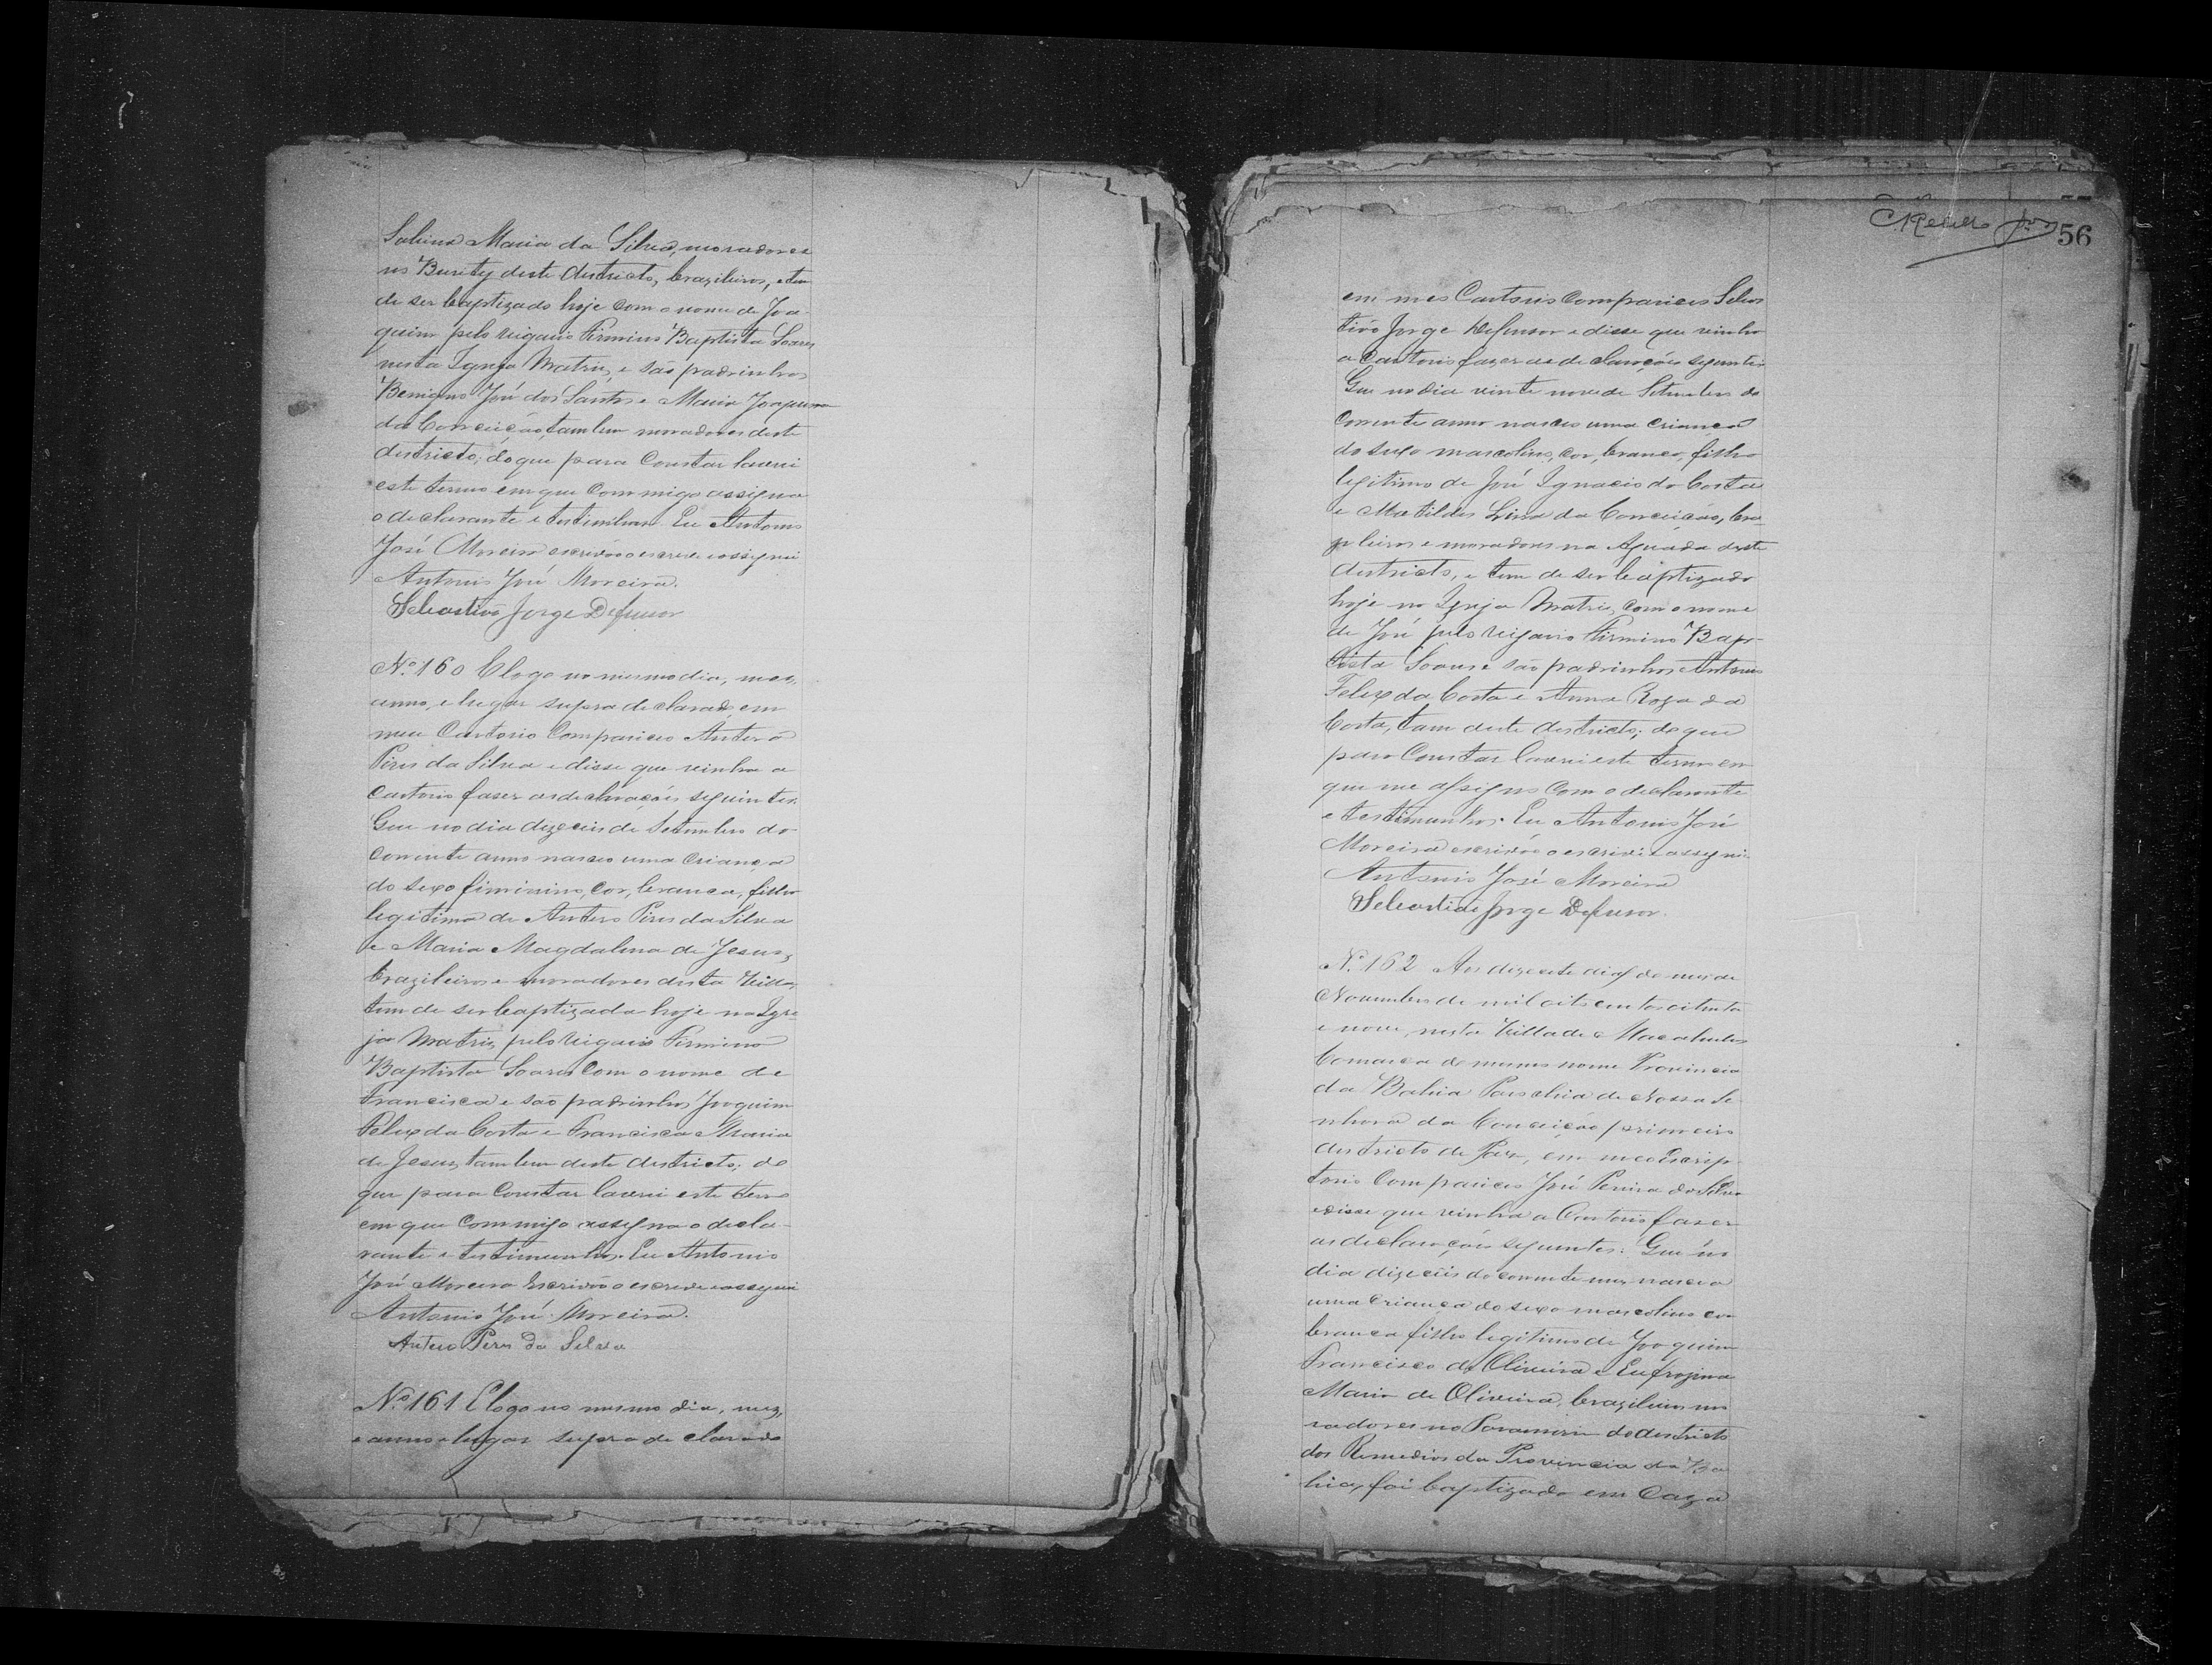 Sabina Maria da Silva, moradores
no Burity deste districto, brazileiros, e tem
de ser baptizado hoje com o nome de Joa-
quim pelo Vigario Firmino Baptista Soares
nesta Igreja Matriz, e são padrinhos
Benigno José dos Santos e Maria Joaquina
da Conceição, tambem moradores deste
districto; do que para constar lavrei
este termo em que commigo assigna
o declarante e testimunhas. Eu Antonio
José Moreira escrivão o escrevi e assignei
Antonio José Moreira.
Sebastião Jorge Defensor
No. 160 E logo no mesmo dia, mes,
anno, e lugar supra declarado, em
meu Cartorio Compareceo Antero
Pires da Silva e disse que vinha a
Cartorio faser as declarações seguintes.
Que no dia dezeceis de Setembro do
corrente anno nasceo uma criança
do sexo fiminino, cor, branca, filha
legitima de Antero Pires da Silva
e Maria Magdalena de Jesus,
brazileiros e moradores desta Villa,
tem de ser baptizada hoje na Igre-
ja Matriz pelo Vigario Firmino
Baptista Soares Com o nome de
Francisca e são padrinhos Joaquim
Felix da Costa e Francisca Maria
de Jesus, tambem deste districto; do
que para Constar lavrei este termo
em que Commigo assigna o decla-
rante e testimunhas. Eu Antonio
José Moreira Escrivão o escrevi e assignei
Antonio José Moreira.
Antero Pires da Silva
No. 161 E logo no mesmo dia, mez,
e anno e lugar supra declarado
56
em meo Cartorio Compareceo Sebas
tião Jorge Defensor e disse que vinha
a Cartorio fazer as declarações seguintes
Que no dia vinte nove de Setembro do
Corrente anno nasceo uma criança
do sexo mascolino, cor, branca, filho
legitimo de José Ignacio da Costa
e Matildes Lina da Conceição, bra
zileiros e moradores na Aguada deste
districto, e tem de ser baptizado
hoje na Igreja Matriz, com o nome
de José pelo Vigario Firmino Bap-
tista Soares e são padrinhos Antonio
Felix da Costa e Anna Roza da
Costa, tam deste districto; do que
para Constar lavrei este termo em
que me assigno Com o declarante
e testimunhas. Eu Antonio José
Moreira escrivão o escrevi e assignei.
Antonio José Moreira
Sebastião Jorge Defensor.
No. 162 Aos dezecete dias do mez de
Novembro de mil oito centos oitenta
e nove, nesta Villa de Macahubas
Comarca do mesmo nome Provincia
da Bahia Parochia de Nossa Se
nhora da Conceição primeiro
districto de Paz, em meo Escrip
torio Compareceo José Pereira da Silva
e disse que vinha a Cartorio fazer
as declarações seguintes: Que no
dia dizeceis do corrente mez nasceo
uma Criança do sexo mascolino cor
branca filho legitimo de Joaquim
Francisco de Oliveira e Eufrozina
Maria de Oliveira, brazileiros mo
radores no Paramirim do districto
dos Remedios da Provincia da Ba
hia, foi baptizado em Caza